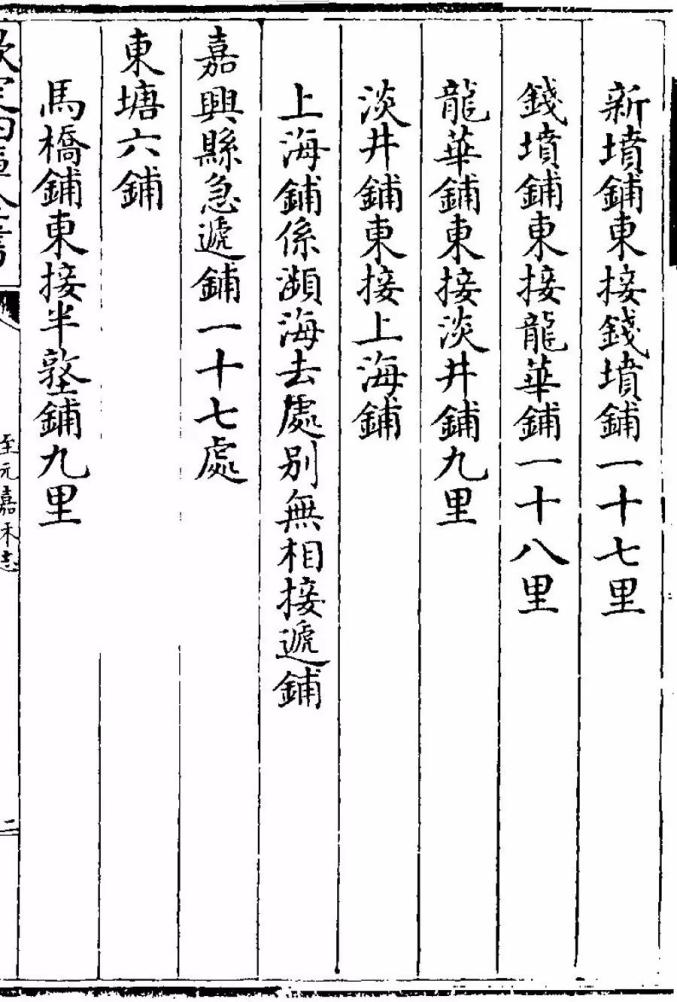 新墳鋪東接錢墳鋪一十七里
錢墳鋪東接龍華鋪一十八里
龍華鋪東接淡井鋪九里
淡井鋪東接上海鋪
上海鋪係瀕海去處别無相接遞鋪
嘉興縣急遞鋪一十七處
東塘六鋪
馬橋鋪東接半墼鋪九里
欽定四庫全書
至元嘉禾志
二